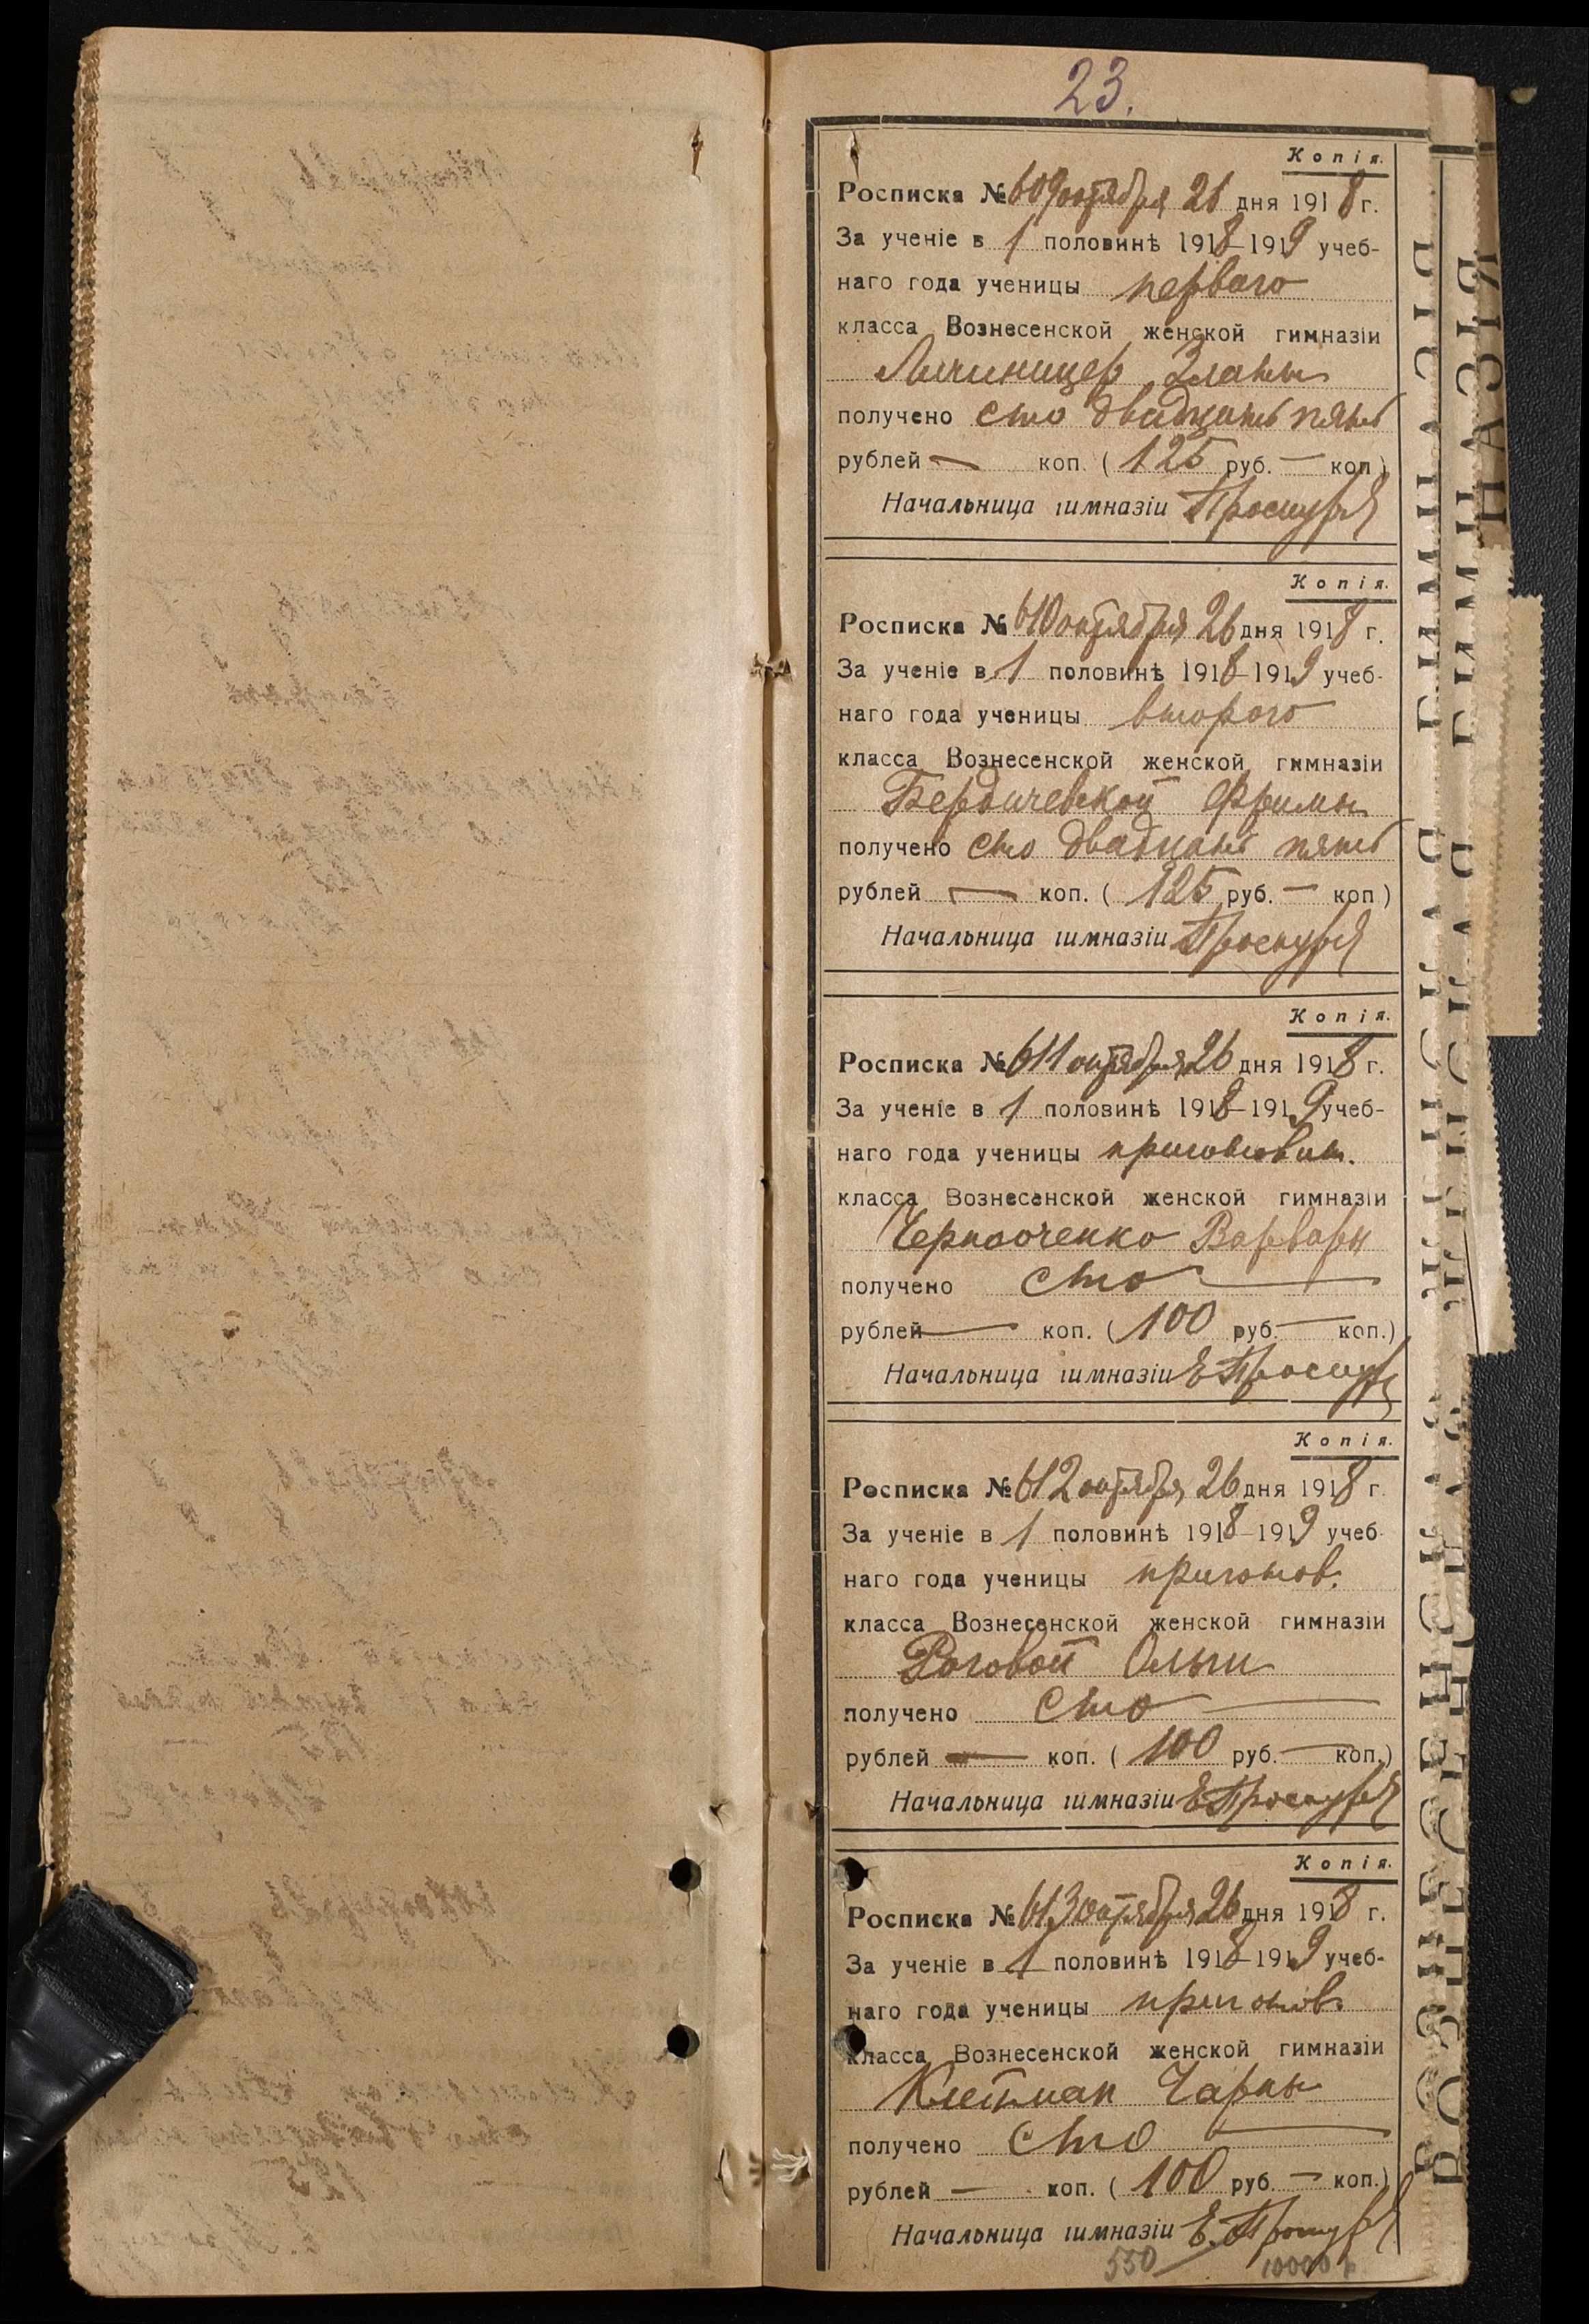 23.
Копія.
Росписка № 609 октября 26 дня 1918 г.
За ученіе в 1 половинѣ 1918–1919 учеб-
наго года ученицы перваго
класса Вознесенской женской гимназіи
Златы
получено сто двадцать пять
рублей — коп. (125 руб. — коп)
Начальница гимназіи
Копія.
Росписка № 610 октября 26 дня 1918 г.
За ученіе в 1 половинѣ 1918–1919 учеб-
наго года ученицы второго
класса Вознесенской женской гимназіи
Бердичевской Фримы
получено сто двадцать пять
рублей — коп. (125 руб. — коп)
Начальница гимназіи
Копія.
Росписка № 611 октября 26 дня 1918 г.
За ученіе в 1 половинѣ 1918–1919 учеб-
наго года ученицы приготовит.
класса Вознесенской женской гимназіи
Варвары
получено сто —
рублей — коп. (100 руб. — коп.)
Начальница гимназіи Е
Копія.
Росписка № 612 октября 26 дня 1918 г.
За ученіе в 1 половинѣ 1918–1919 учеб-
наго года ученицы приготов.
класса Вознесенской женской гимназіи
Роговой Ольги
получено сто —
рублей — коп. (100 руб. — коп.)
Начальница гимназіи Е
Копія.
Росписка № 613 октября 26 дня 1918 г.
За ученіе в 1 половинѣ 1918–1919 учеб-
наго года ученицы приготов.
класса Вознесенской женской гимназіи
Клейман Чарны
получено сто —
рублей — коп. (100 руб. — коп.)
Начальница гимназіи Е.
550